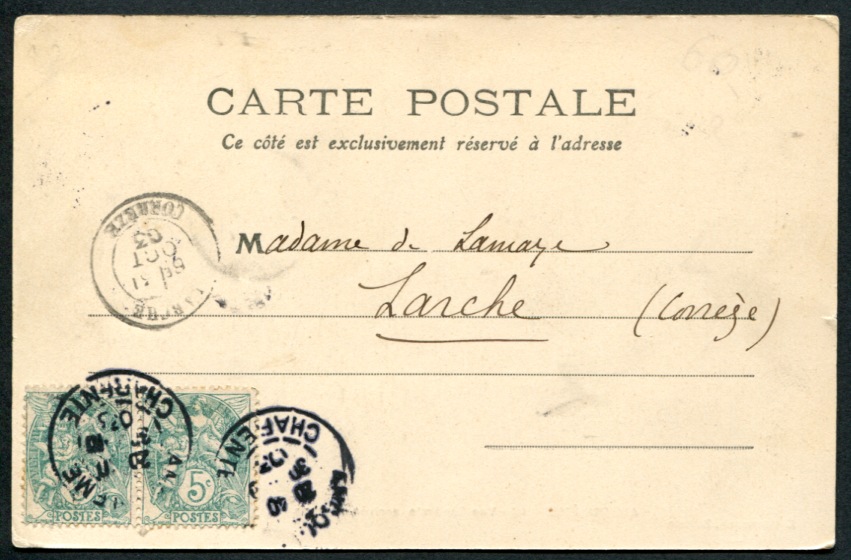 CARTE POSTALE
Ce côté est exclusivement réservé à l'adresse
Madame de Lamaze
Larche (Corrèze)
CORREZE
OCT
03
LARCHE
CHARENTE
CHARENTE
5c
POSTES
POSTES